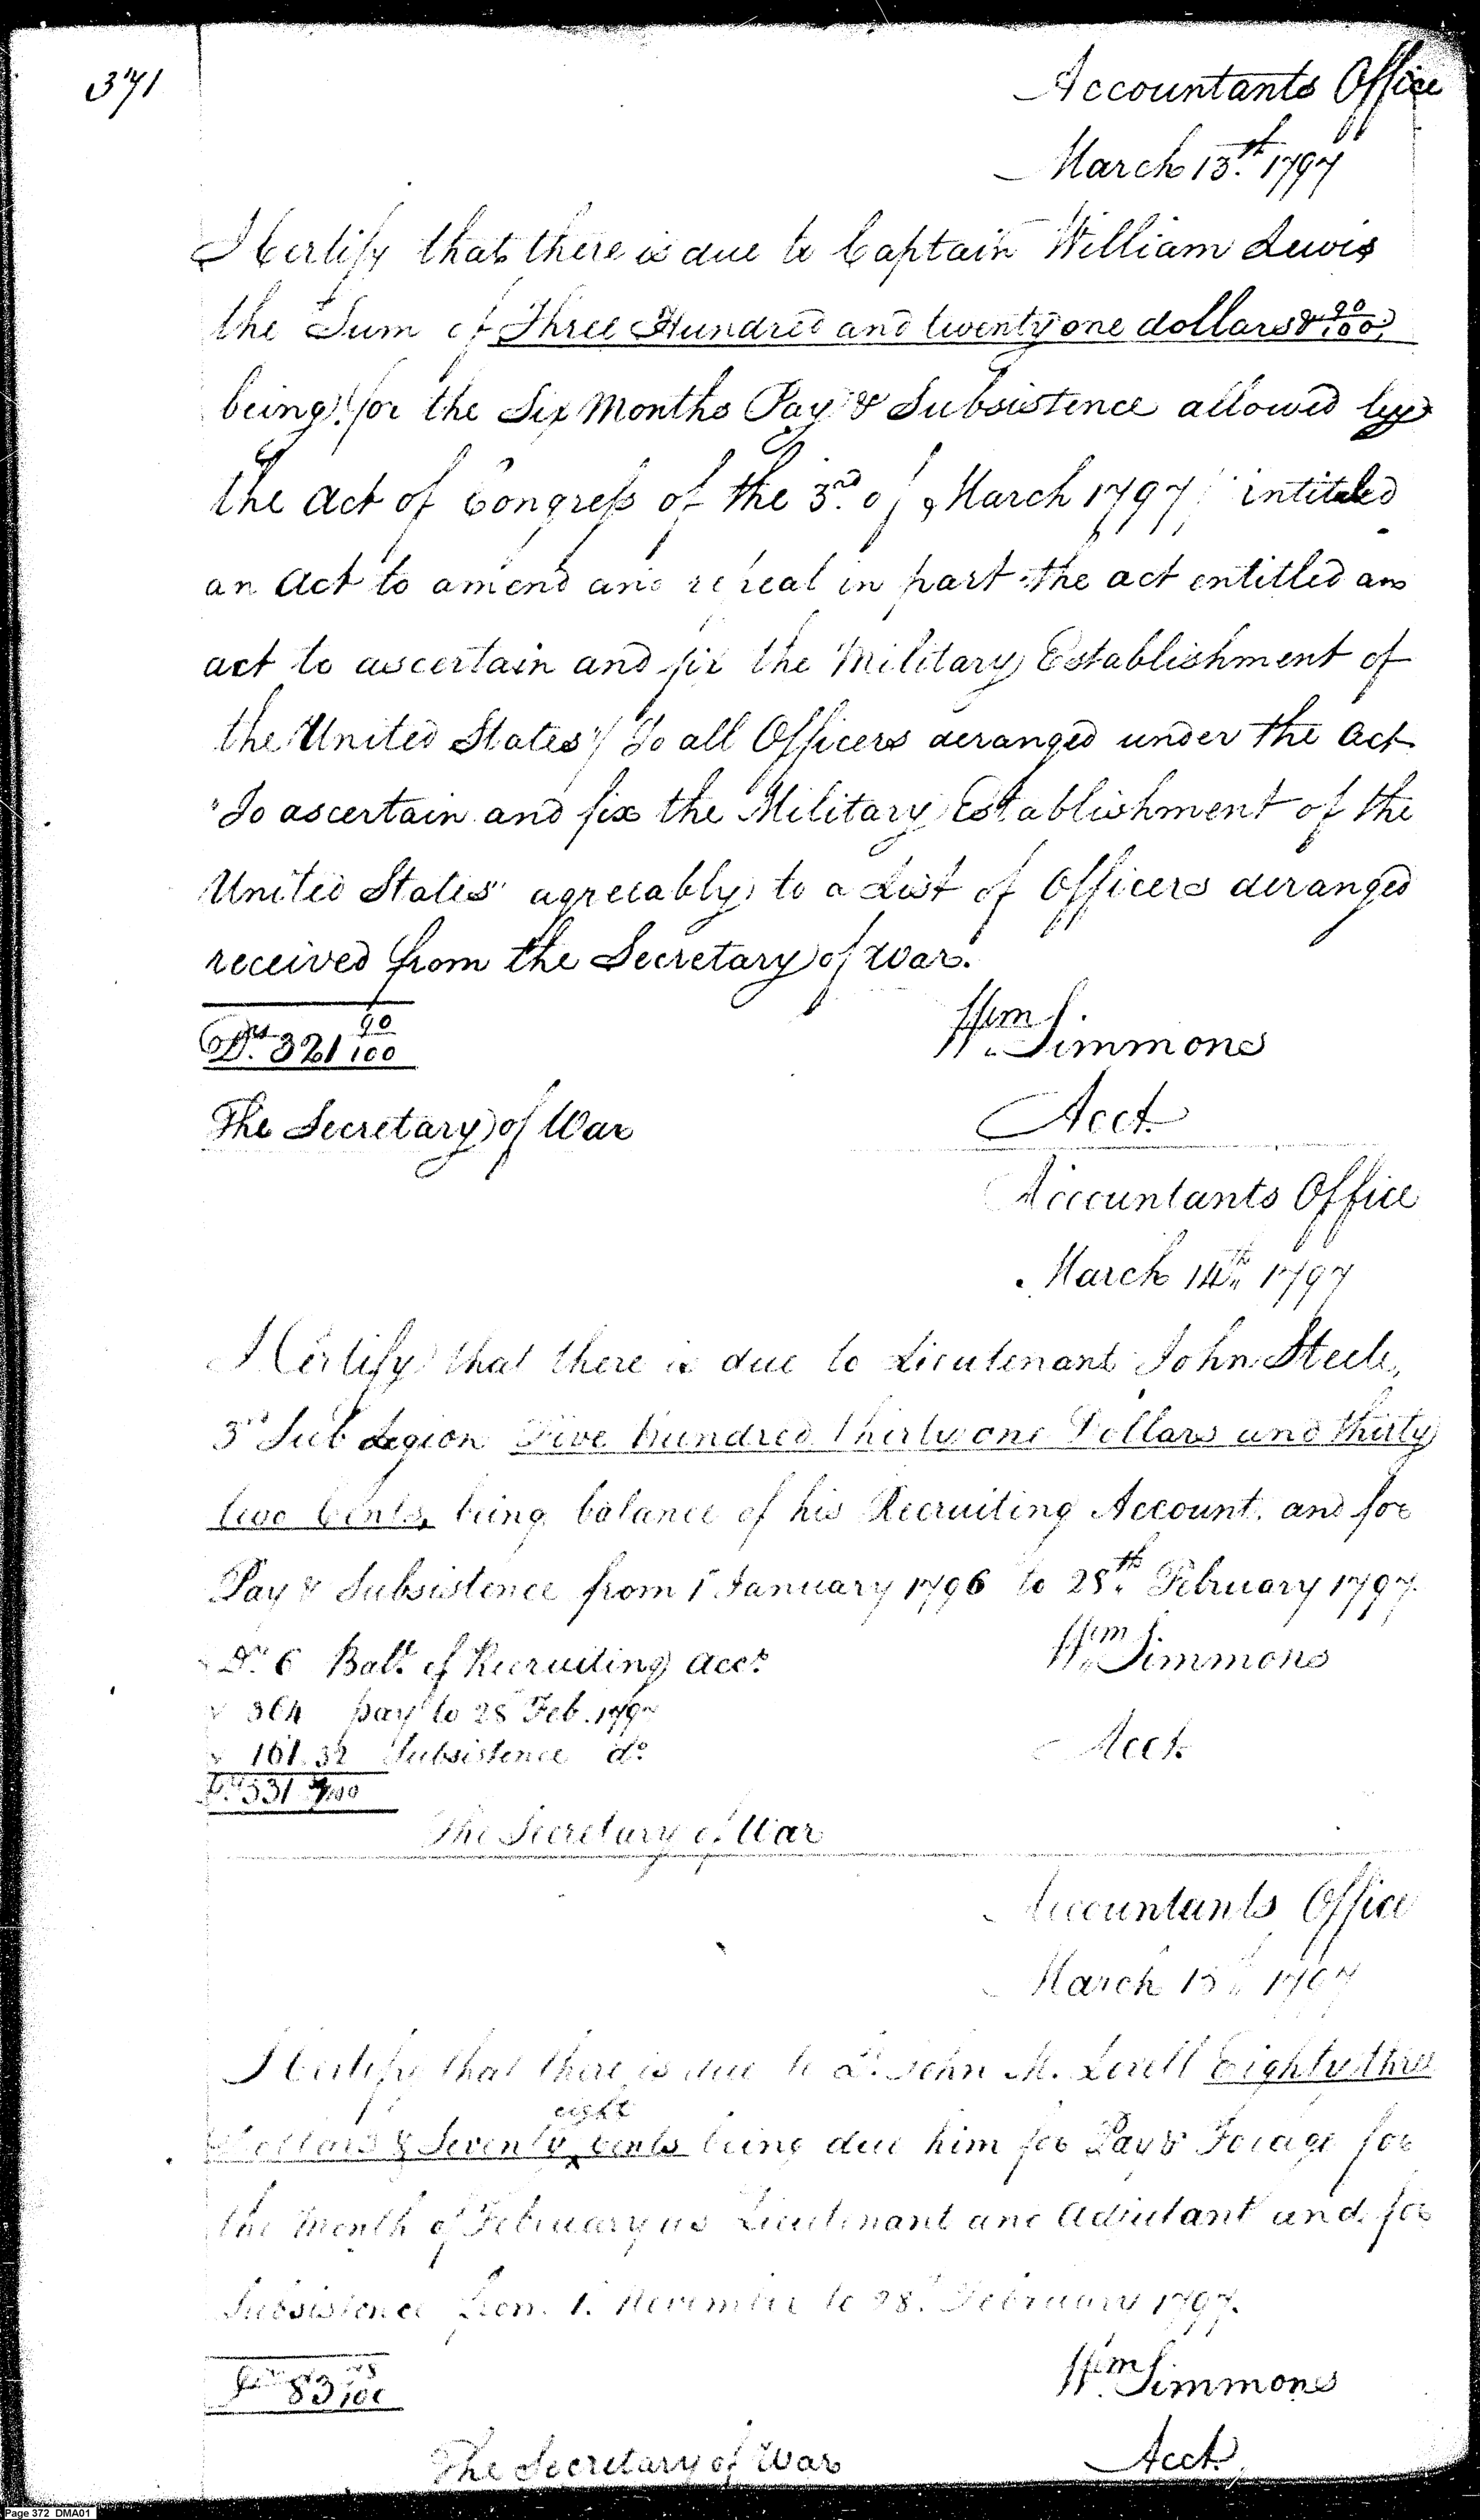 371
Accountants Office
March 13th. 1797
I Certify that there is due to Captain William Lewis
the Sum of Three Hundred and twenty one dollars & 90/100,
being for the Six Months Pay & Subsistence allowed by
the Act of Congress of the 3rd. of March 1797 intitaled
an Act to amend and repeal in part the act entitled an
act to ascertain and fix the Military Establishment of
the United States" To all Officers deranged under the Act
"To ascertain and fix the Military Establishment of the
United States" agreeably to a List of Officers deranged
received from the Secretary of War.
Drs. 321 90/100
Wm. Simmons
The Secretary of War
Acct.
Accountants Office
March 14th. 1797
I Certify that there is due to Lieutenant John Steele,
3rd Sub Legion Five hundred thirty one Dollars and thirty
two Cents, being balance of his Recruiting Account. and for
Pay & Subsistence from 1st January 1796 to 28th. February 1797.
Drs. 6 Balce. of Recruiting Acct.
Wm. Simmons
" 364 pay to 28 Feb. 1797
" 161.32 Subsistence do.
Acct.
Drs. 531 32/100
The Secretary of War
Accountants Office
March 15th. 1797
I Certify that there is due to Lt. John M. Lovell Eighty three
Dollars & Seventy eight Cents being due him for Pay & Forage for
the Month of February as Lieutenant and Adjutant and for
Subsistence from 1. November to 28. February 1797.
83 78/100
Wm. Simmons
The Secretary of War
Acct.
Page 372 DMA01